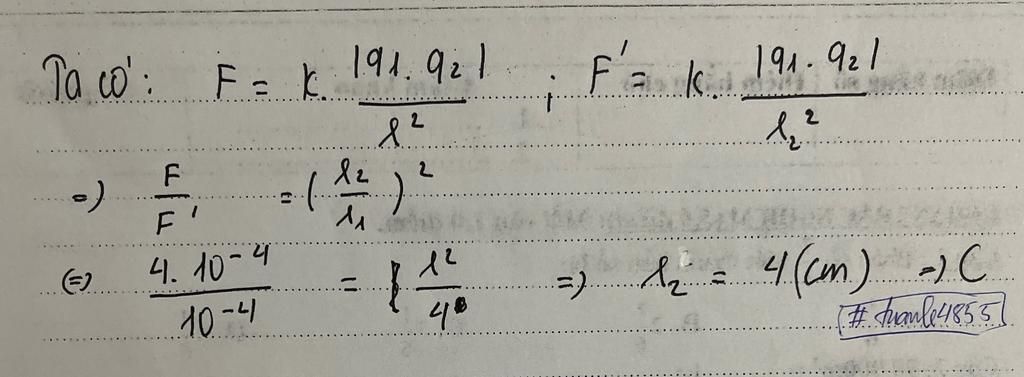 Ta có: F = k. |q1. q2| / r² ; F' = k. |q1. q2| / r₂²
=) F / F' = ( r₂ / r₁ )²
(=) 4. 10⁻⁴ / 10⁻⁴ = r² / 4 =) r₂ = 4 (cm) =) C
#tuanle4855